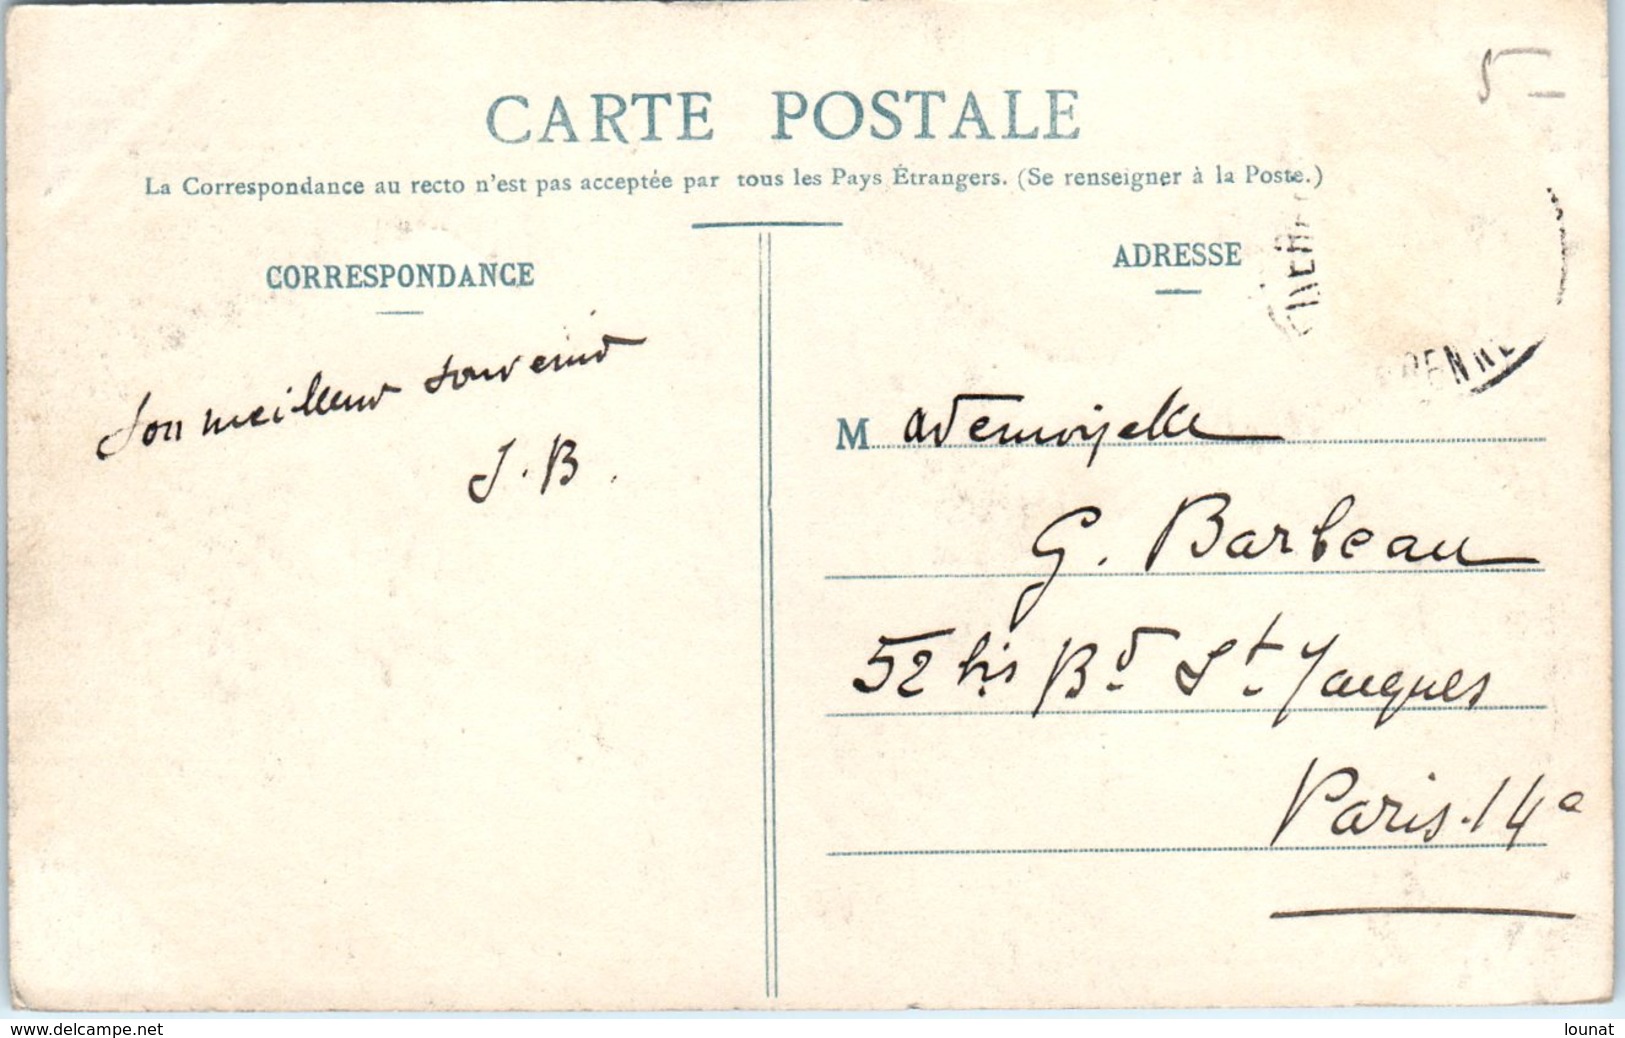 5 –
CARTE POSTALE
La Correspondance au recto n'est pas acceptée par tous les Pays Étrangers. (Se renseigner à la Poste.)
CORRESPONDANCE
Son meilleur souvenir
J. B.
ADRESSE
Mademoiselle
G. Barbeau
52 bis Bd St Jacques
Paris. 14e
www.delcampe.net
lounat